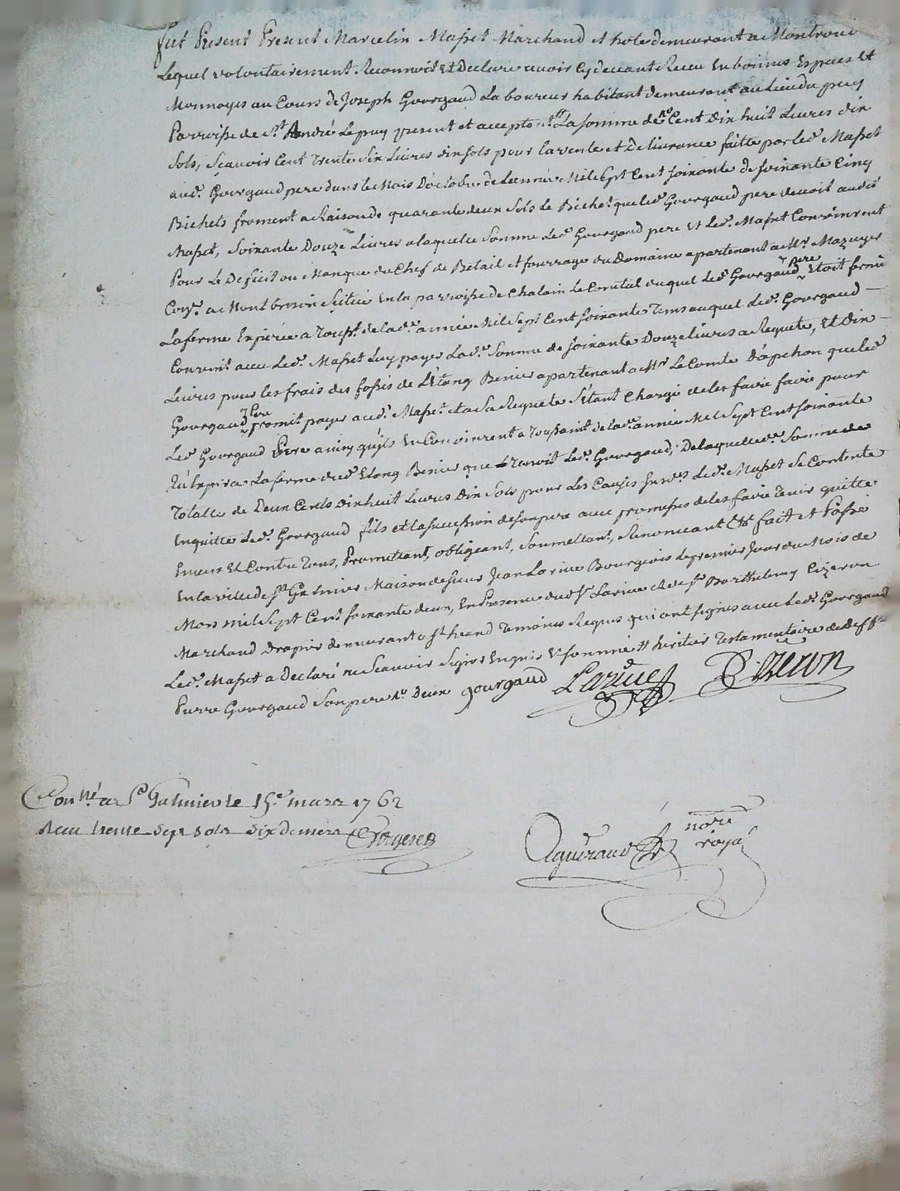 fut Present Present Marcelin Masset Marchand et hote demeurant a Montrond
Lequel volontairement Reconnoit Et Declare avoir Cy devant Receu En bonnes Especes Et
Monnoyes au Cours de Joseph Gourgaud Laboureur habitant demeurant au Lieu du puy
Parroisse de St. André Le puy present et acceptant La somme de Cent Dix huit Livres dix
Sols, Sçavoir Cent Trente Six Livres dix Sols pour La vente et Delivrance faitte par Led. Masset
aud. Gourgaud pere dans le Mois D'octobre de L'année Mil Sept Cent Soixante de Soixante Cinq
Bichets froment a Raison de quarante deux Sols Le Bichet que Led. Gourgaud pere devoit audit
Masset, Soixante Douze Livres a laquelle Somme Led. Gourgaud pere Et Led. Masset Convinrent
Pour Le Deficit ou Manque du Chef de Betail et fourrage du Domaine apartenant a Mr. Mazuyer
a Montbrison Situé En la parroisse de Chalain Le Comtal duquel Led. Gourgaud pere Etoit fermier
La ferme Expirée a Touss. de lad. année Mil Sept Cent Soixante Tems auquel Led. Gourgaud
Convint avec Led. Masset Luy payer Lad. Somme de Soixante Douze Livres a Requete, Et Dix
Livres pour les frais des fossés de L'Etang Benier apartenant a Mr. Le Comte D'apchon que Led.
Gourgaud pere promit payer aud. Masset a sa Requete S'étant Chargé de les faire faire pour
Led. Gourgaud Pere ainsy qu'ils En Convinrent a Toussaint de lad. année Mil Sept Cent Soixante
La ferme dud. Etang Benier que Tenoit Led. Gourgaud; De laquelle Somme de
Totalle de Deux Cents Dix huit Livres Dix Sols pour Les Causes Led. Masset Se Contente
En quitte Led. Gourgaud fils et la succession de Son pere avec promesse de les faire Tenir quitte
Envers Et Contre Tous, Promettant, obligeant, Soumettant, Renonçant Etc. fait et Passé
En la ville de St. Galmier Maison de Sieur Jean Larive Bourgeois Le premier Jour du Mois de
Mars mil Sept Cent Soixante deux, En Presence dud. Sr. Larive et de Sr. Barthelemy Cizeron
Marchand Drapier demeurant a St. heand Temoins Requis qui ont signés avec Led. Gourgaud
Led. Masset a Declaré ne Sçavoir Signer Enquis Et Sommé heritier Testamentaire de Deff.
Pierre Gourgaud Son pere gourgaud Larive Cizeron
Con.lé a St. Galmier le 15e. mars 1762
Receu trente Sept Sols Six deniers
nore
royal